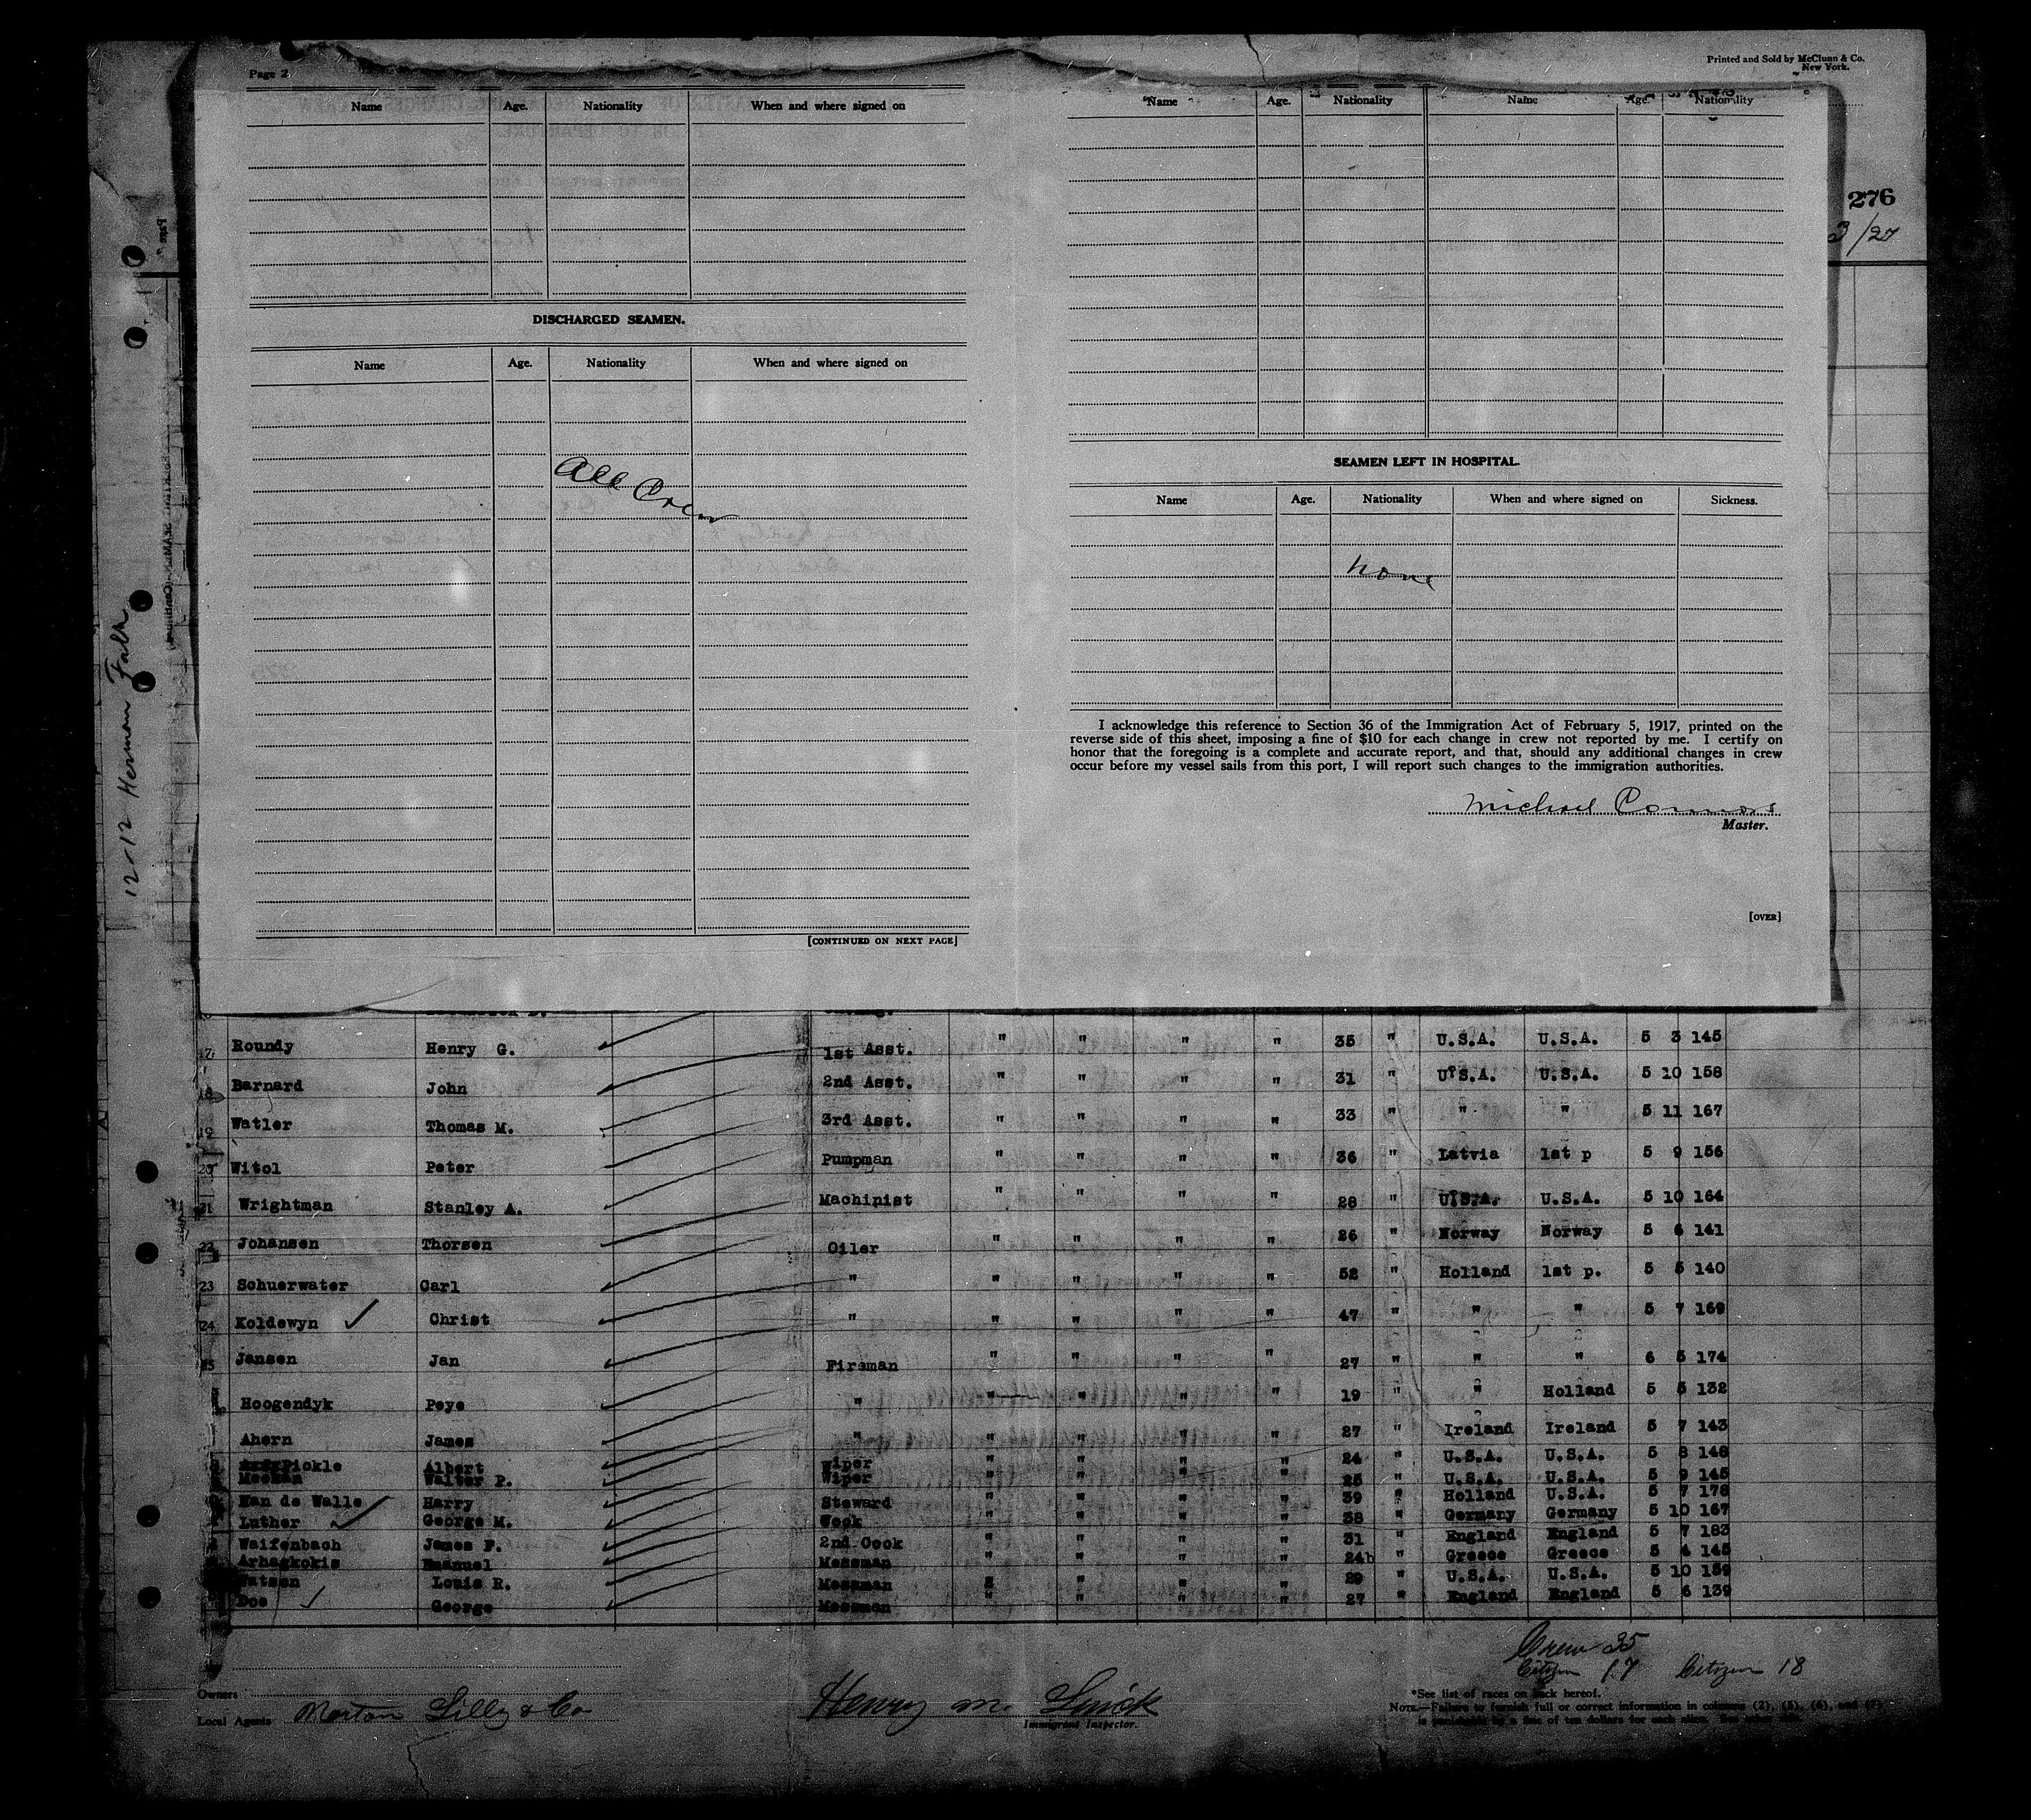 Page 2
Printed and Sold by McClunn & Co.
New York.
Name Age. Nationality When and where signed on
Name Age. Nationality Name Age. Nationality
276
3/27
DISCHARGED SEAMEN.
Name Age. Nationality When and where signed on
All Crew
SEAMEN LEFT IN HOSPITAL.
Name Age. Nationality When and where signed on Sickness.
None
I acknowledge this reference to Section 36 of the Immigration Act of February 5, 1917, printed on the
reverse side of this sheet, imposing a fine of $10 for each change in crew not reported by me. I certify on
honor that the foregoing is a complete and accurate report, and that, should any additional changes in crew
occur before my vessel sails from this port, I will report such changes to the immigration authorities.
Michael Connors
Master.
[OVER]
[CONTINUED ON NEXT PAGE]
12-12 Herman Falk
17 Roundy Henry G. 1st Asst. " " " " 35 " U.S.A. U.S.A. 5 3 145
18 Barnard John 2nd Asst. " " " " 31 " U.S.A. U.S.A. 5 10 158
19 Watler Thomas M. 3rd Asst. " " " " 33 " " " 5 11 167
20 Witol Peter Pumpman " " " " 36 " Latvia 1st p 5 9 156
21 Wrightman Stanley A. Machinist " " " " 28 " U.S.A. U.S.A. 5 10 164
22 Johansen Thorsen Oiler " " " " 26 " Norway Norway 5 6 141
23 Schuerwater Carl " " " " " 52 " Holland 1st p. 5 5 140
24 Koldewyn Christ " " " " " 47 " " " 5 7 169
25 Jansen Jan Fireman " " " " 27 " " " 6 5 174
Hoogendyk Peye " " " " " 19 " " Holland 5 5 132
Ahern James " " " " " 27 " Ireland Ireland 5 7 143
Pickle Albert Wiper " " " " 24 " U.S.A. U.S.A. 5 8 148
Meehan Walter P. Wiper " " " " 25 " U.S.A. U.S.A. 5 9 145
Van de Walle Harry Steward " " " " 39 " Holland U.S.A. 5 7 178
Luther George M. Cook " " " " 38 " Germany Germany 5 10 167
Waifenbach James F. 2nd Cook " " " " 31 " England England 5 7 183
Arhagkokis Emanuel Messman " " " " 24 " Greece Greece 5 4 145
Watson Louis R. Messman " " " " 29 " U.S.A. U.S.A. 5 10 159
Doe George Messman " " " " 27 " England England 5 6 139
Crew 35
Citizen 17 Citizen 18
Owners
Local Agents Morton Lilly & Co
Henry M.
Immigrant Inspector.
*See list of races on back hereof.
NOTE.—Failure to furnish full or correct information in columns (2), (5), (6), and (7)
is punishable by a fine of ten dollars for each alien.